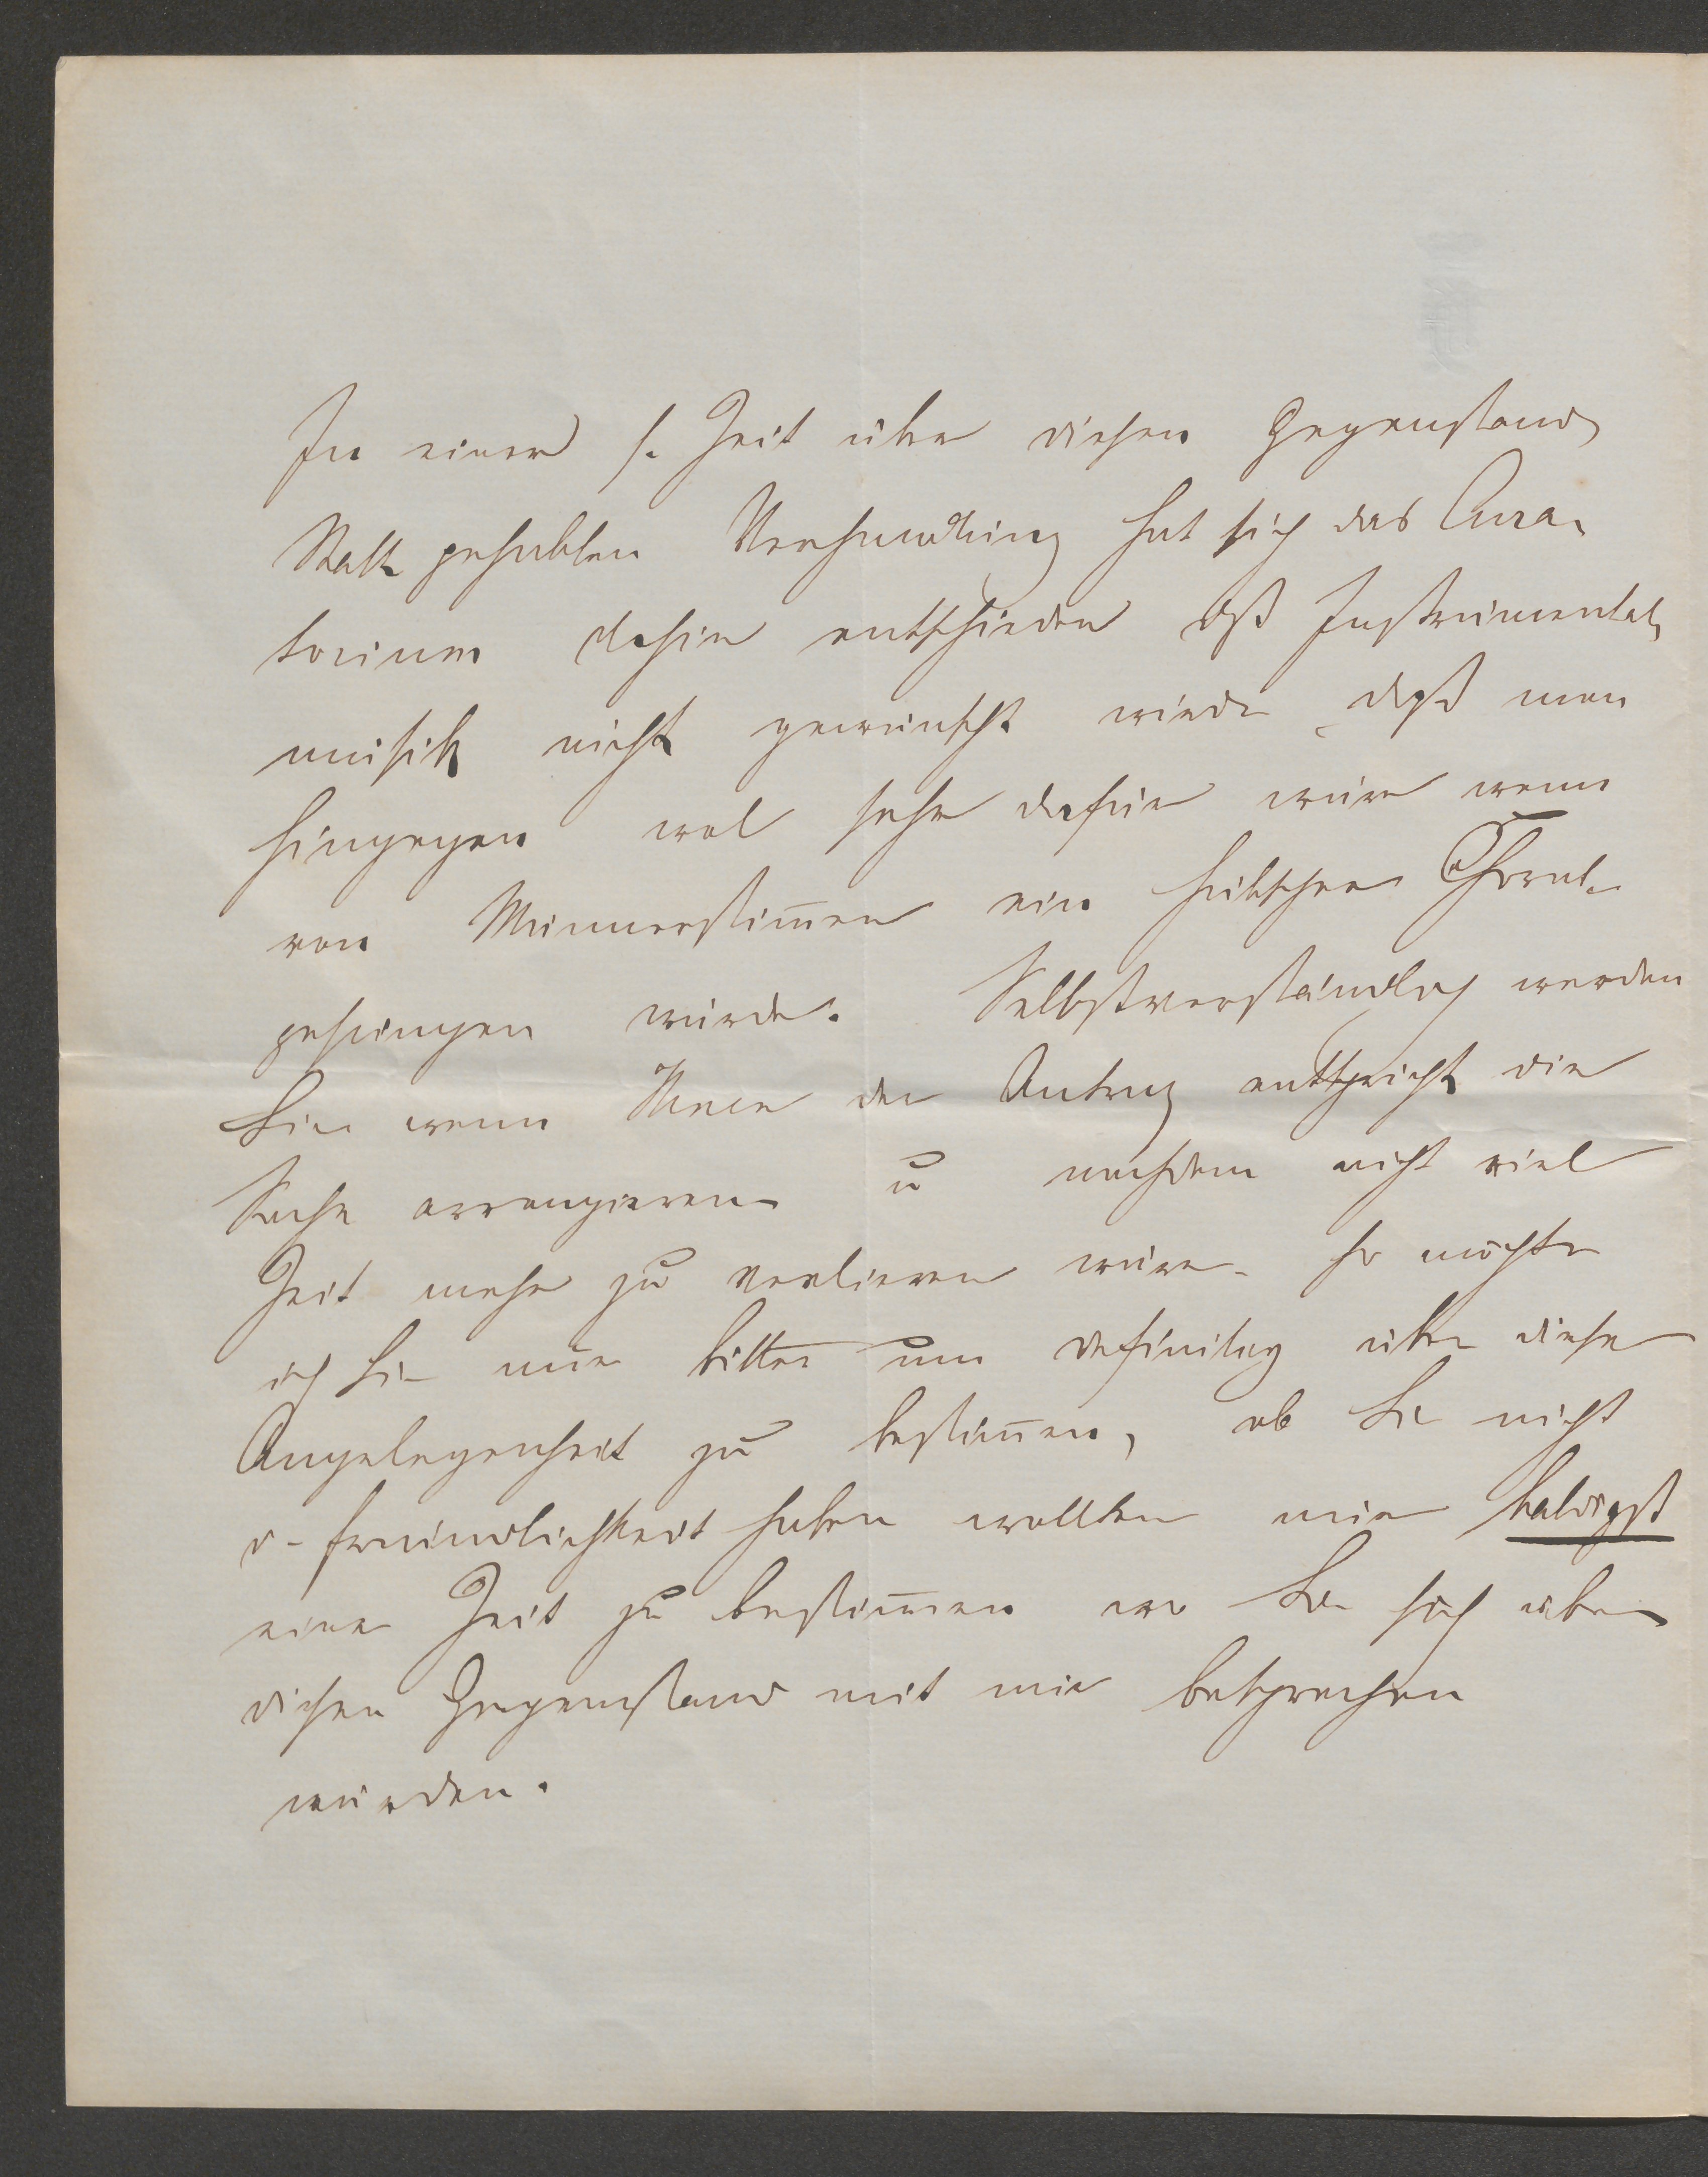 In einer s. Zeit über diesen Gegenstand
Statt gehabten Verhandlung hat sich das Cura-
torium dahin entschieden daß Instrumental
musik nicht gewünscht würde, daß man
hingegen wol sehr dafür wäre wenn
von Männerstim̄en ein hübscher Choral
gesungen würde. Selbstverständlich werden
Sie wenn Ihnen der Antrag entspricht die
Sache arrangieren u nachdem nicht viel
Zeit mehr zu verlieren wäre so möchte
ich Sie nur bitten um definitiv über diese
Angelegenheit zu bestim̄en, ob Sie nicht
d. Freundlichkeit haben wollten mir baldigst
eine Zeit zu bestim̄en wo Sie sich über
diesen Gegenstand mit mir besprechen
würden.